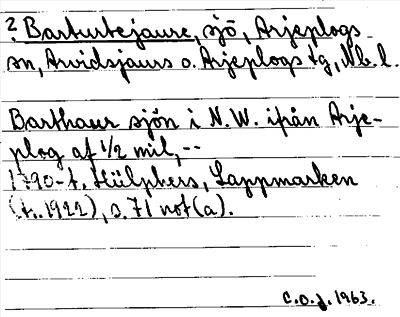 ? Barturtejaure, sjö, Arjeplogs
sn, Arvidsjaurs o. Arjeplogs tg, Nb.l.
Barthaur sjön i N.W. ifrån Arje-
plog af 1/2 mil,--
1790-t. Hülphers, Lappmarken
(tr. 1922), s. 71 not(a).
C.O.J. 1963.